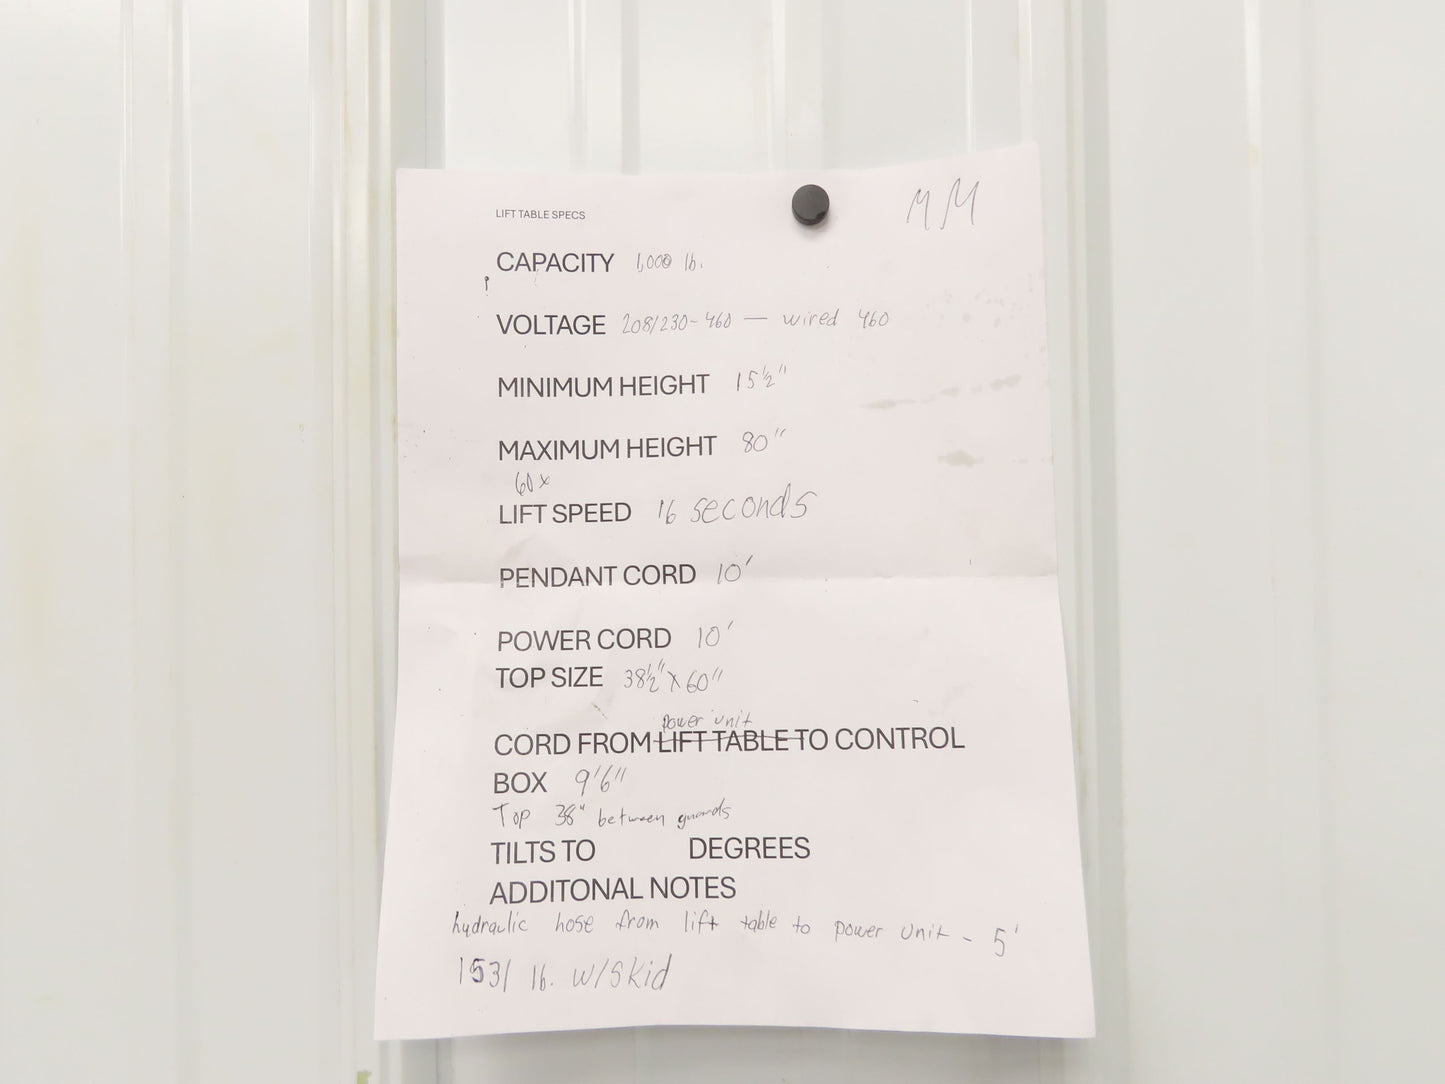 LIFT TABLE SPECS
MM
CAPACITY 1,000 lb.
VOLTAGE 208/230-460 — wired 460
MINIMUM HEIGHT 15½"
MAXIMUM HEIGHT 80"
60x
LIFT SPEED 16 seconds
PENDANT CORD 10'
POWER CORD 10'
TOP SIZE 38½" x 60"
power unit
CORD FROM LIFT TABLE TO CONTROL
BOX 9'6"
Top 38" between guards
TILTS TO DEGREES
ADDITONAL NOTES
hydraulic hose from lift table to power unit - 5'
1531 lb. w/skid